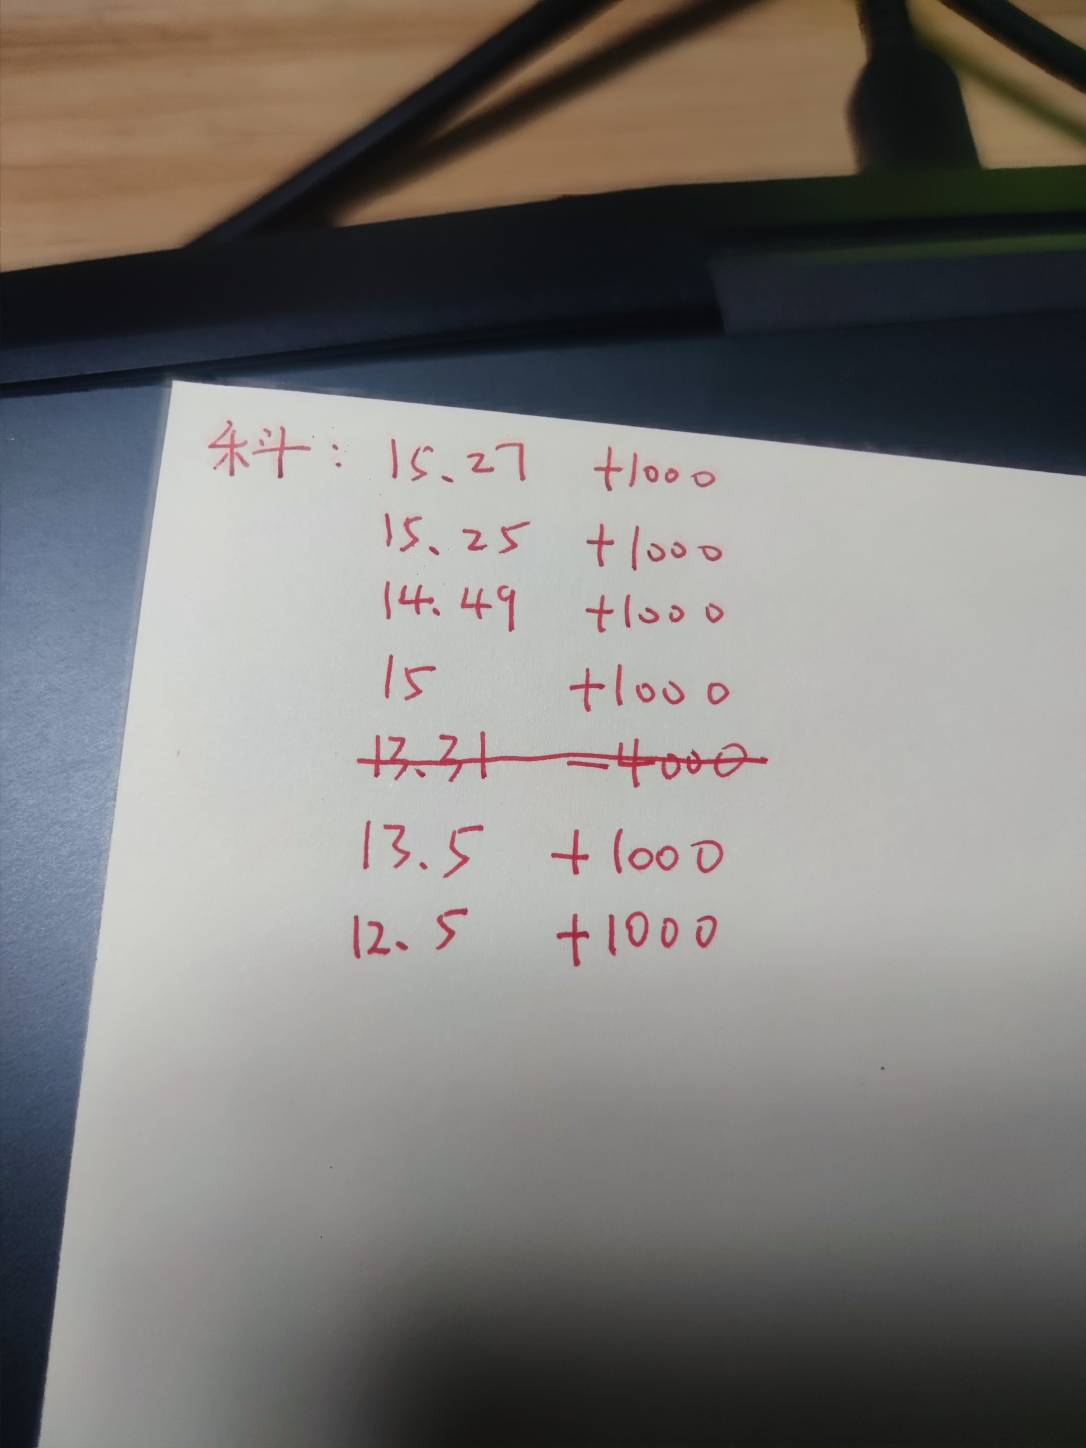 朱斗: 15.27 +1000
15.25 +1000
14.49 +1000
15 +1000
13.31 =4000
13.5 +1000
12.5 +1000